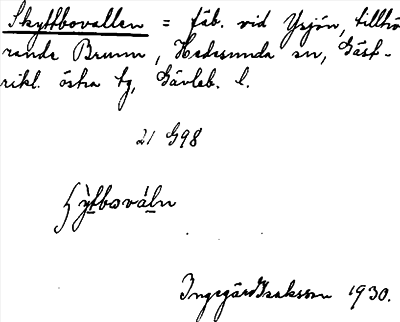 Skyttbovallen = fäb. vid Ysjön, tillhö
rande Brunn, Hedesunda sn, Gäst-
rikl. östra tg, Gävleb. l.
21 G98
ʃỳtbovàln
Ingegärd Isaksson 1930.